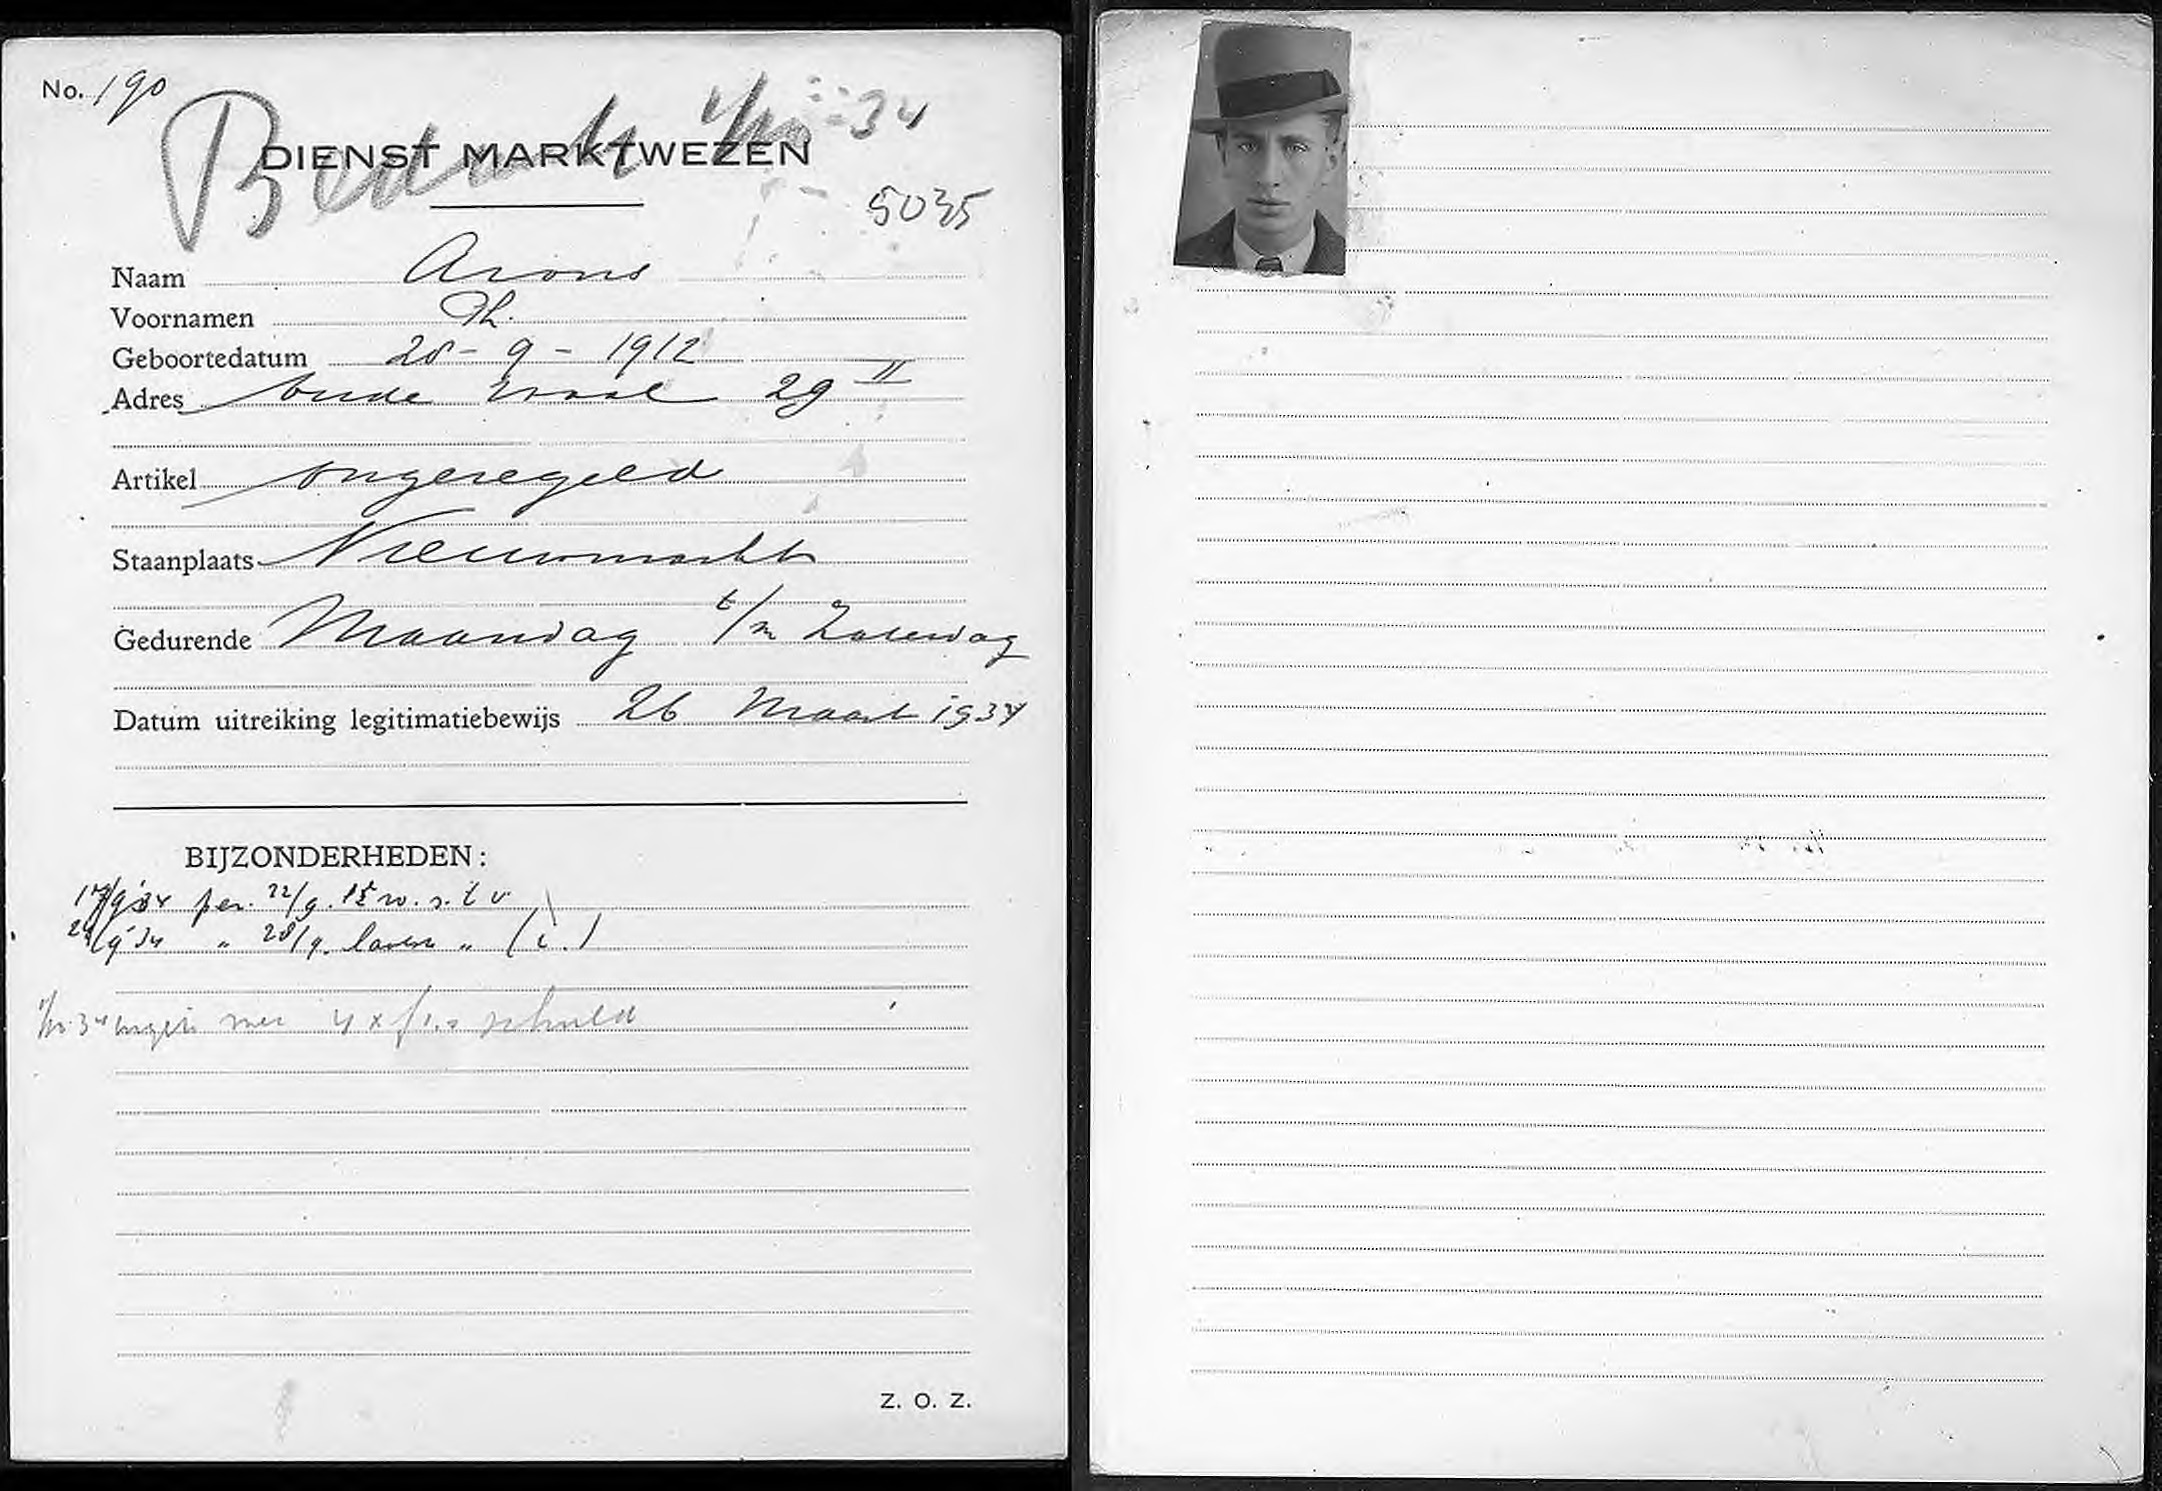 No. 190
Bedankt 1/10-34
DIENST MARKTWEZEN
5035
Naam Arons
Voornamen Th.
Geboortedatum 28-9-1912
Adres Oude Waal 29 II
Artikel ongeregeld
Staanplaats Nieuwmarkt
Gedurende Maandag t/m Zaterdag
Datum uitreiking legitimatiebewijs 26 Maart 1934
BIJZONDERHEDEN:
17/9'34 per. 22/9. 1e w.
24/9'34 " 28/9. "
4 x schuld
Z. O. Z.